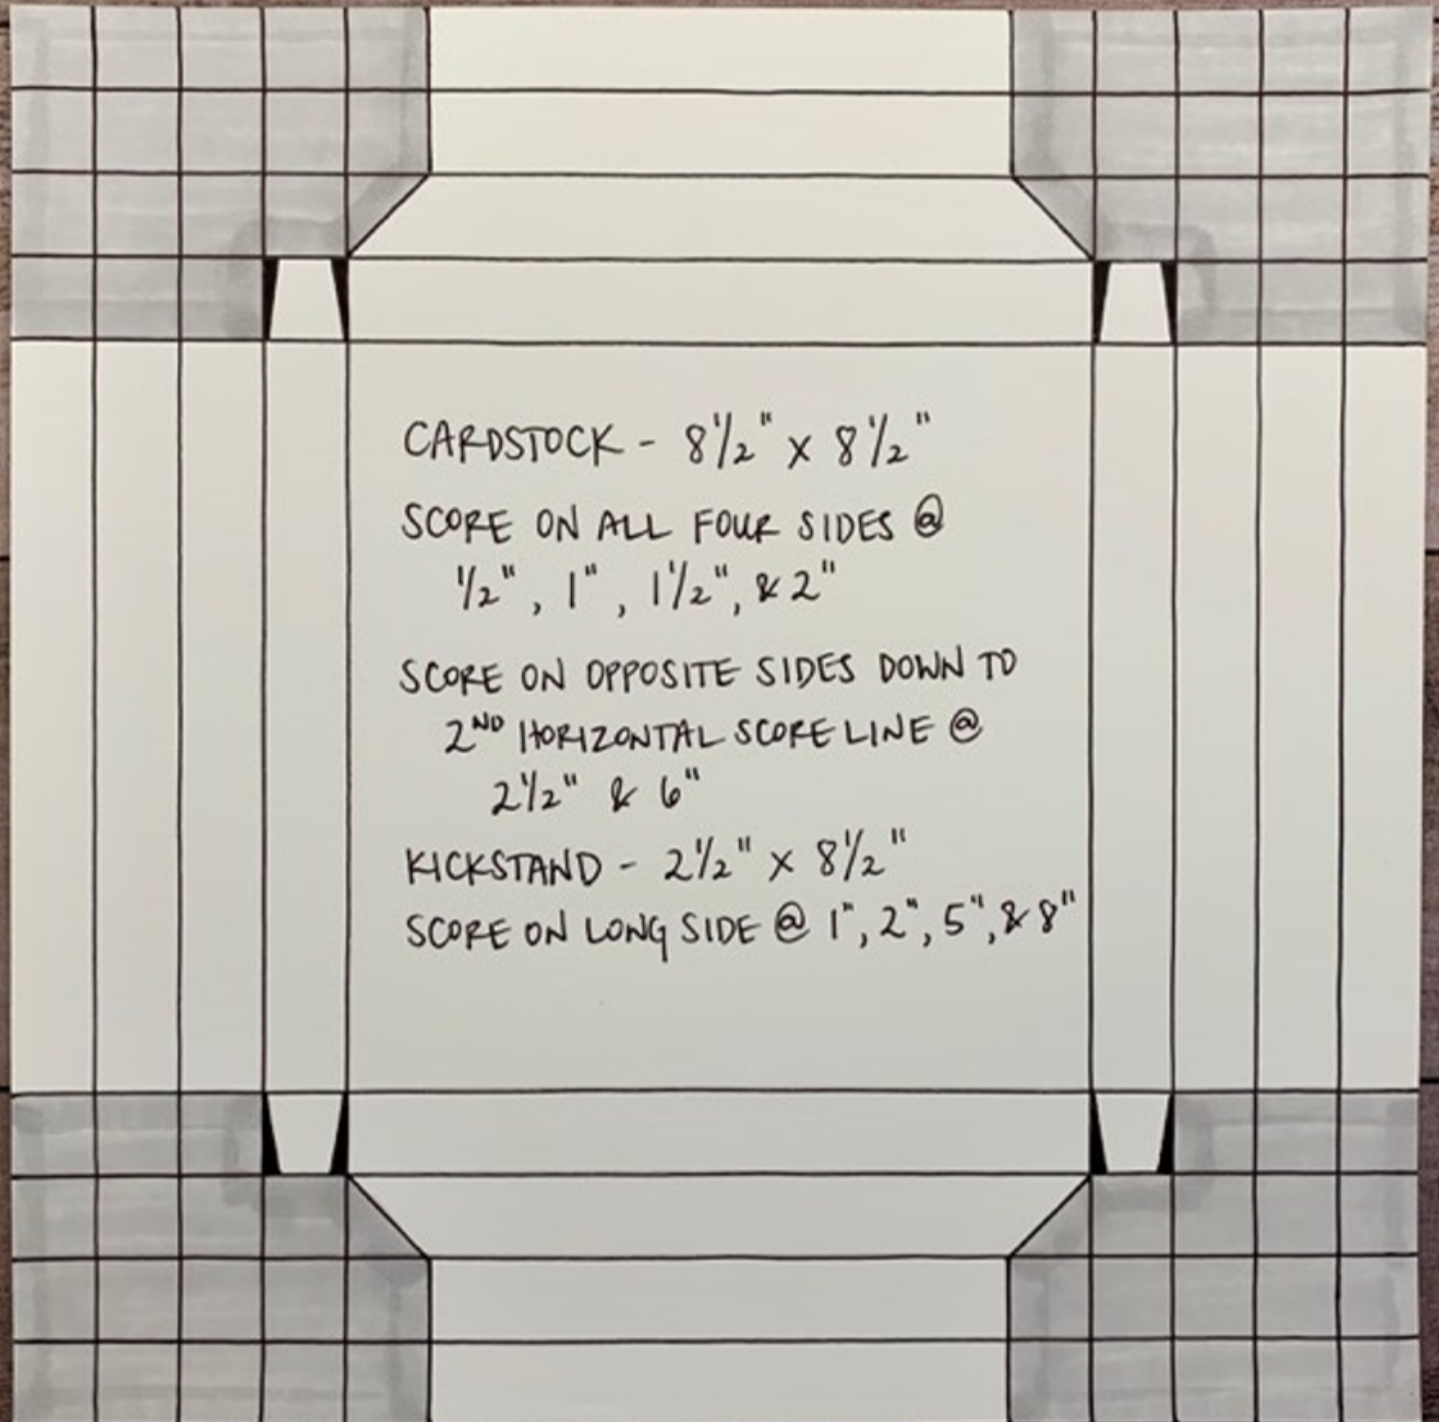 CARDSTOCK - 8 1/2" x 8 1/2"
SCORE ON ALL FOUR SIDES @
1/2", 1", 1 1/2", & 2"
SCORE ON OPPOSITE SIDES DOWN TO
2ND HORIZONTAL SCORE LINE @
2 1/2" & 6"
KICKSTAND - 2 1/2" x 8 1/2"
SCORE ON LONG SIDE @ 1", 2", 5", & 8"